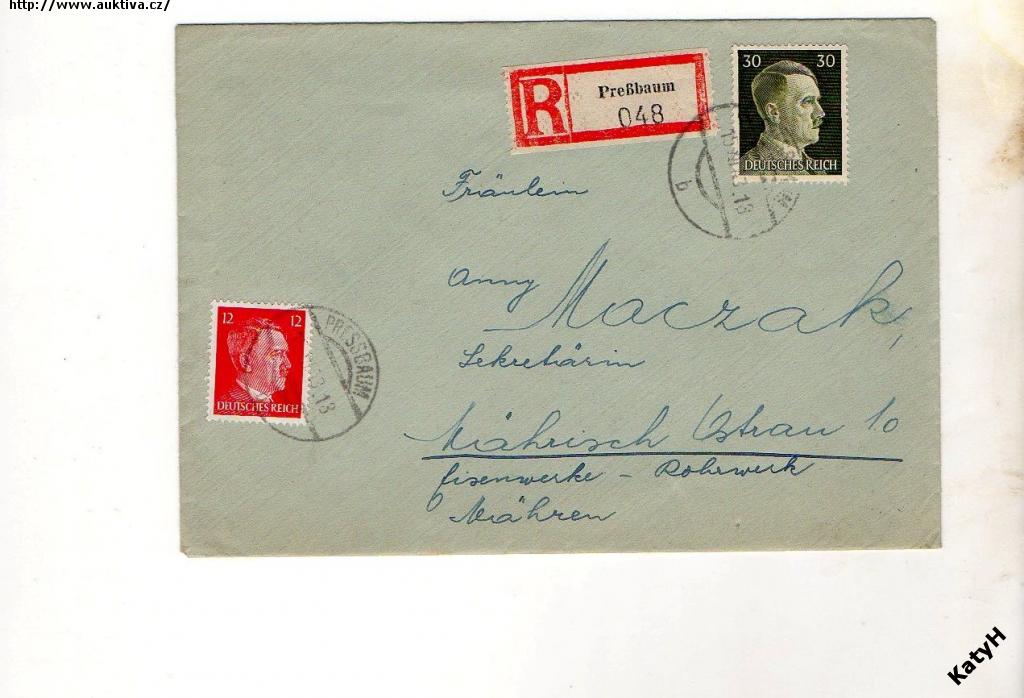 http://www.auktiva.cz/
R
Preßbaum
048
30 30
DEUTSCHES REICH
b
Fräulein
Anny Maczak,
Sekretärin
12 12
DEUTSCHES REICH
PRESSBAUM
Mährisch Ostrau 10
Eisenwerke - Rohrwerk
Mähren
KatyH